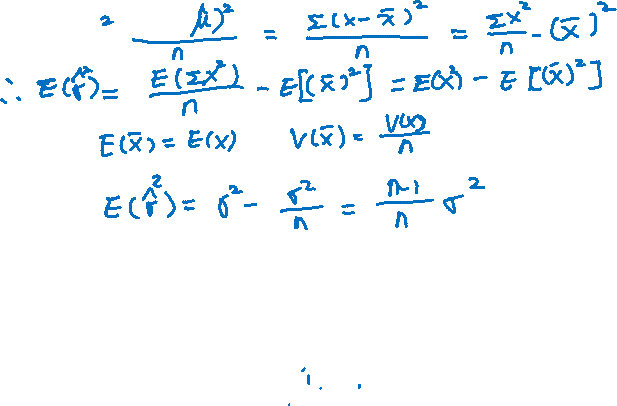 ² μ)² / n = Σ(x - x̄)² / n = Σx² / n - (x̄)²
∴ E(σ̂²) = E(Σx²) / n - E[(x̄)²] = E(x²) - E[(x̄)²]
E(x̄) = E(x) V(x̄) = V(x) / n
E(σ̂²) = σ² - σ² / n = n-1 / n σ²